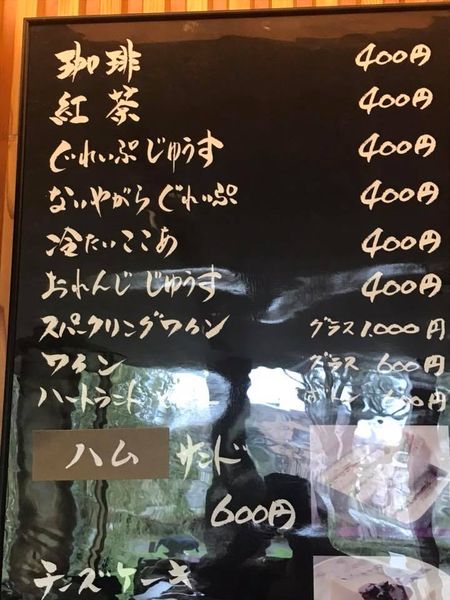 珈琲 400円
紅茶 400円
ぐれいぷじゅうす 400円
ないやがらぐれいぷ 400円
冷たいここあ 400円
おれんじじゅうす 400円
スパークリングワイン グラス 1,000円
ワイン グラス 600円
ハートランド 600円
ハム サンド
600円
チーズケーキ